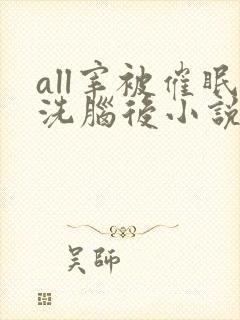 all宰被催眠
洗腦後小説
吴師